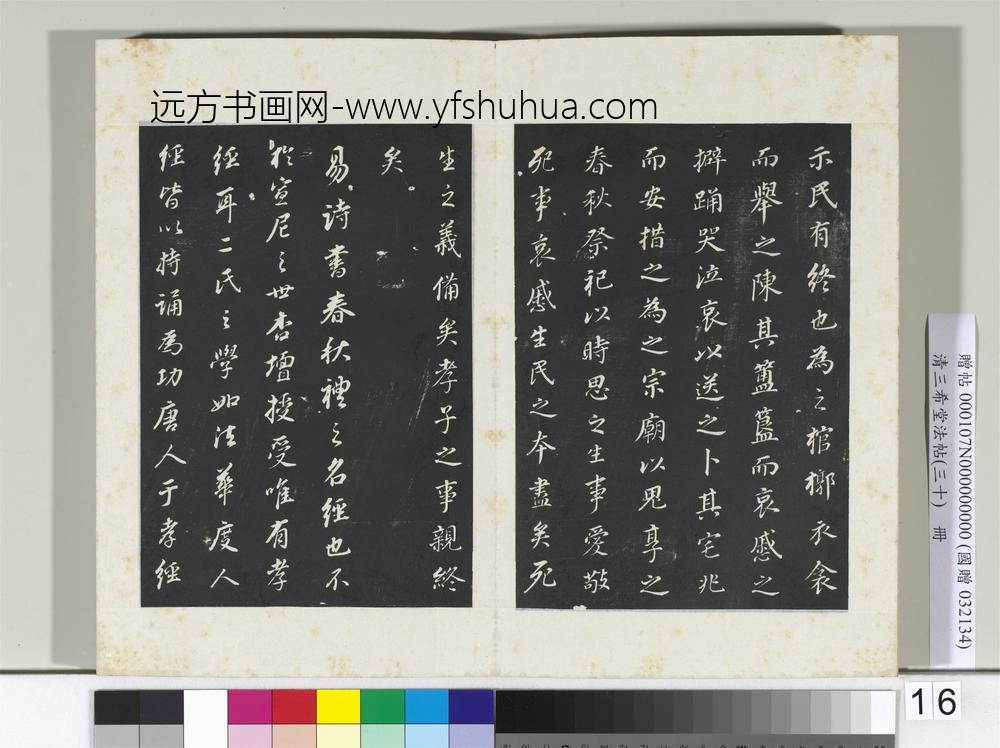 远方书画网-www.yfshuhua.com
示民有終也為之棺槨衣衾
而舉之陳其簠簋而哀慼之
擗踊哭泣哀以送之卜其宅兆
而安措之為之宗廟以鬼享之
春秋祭祀以時思之生事愛敬
死事哀慼生民之本盡矣死
生之義備矣孝子之事親終
矣
易詩書春秋禮之名經也不
於宣尼之世杏壇授受唯有孝
經耳二氏之學如法華度人
經皆以持誦為功唐人于孝經
贈帖 000107N000000000 (國贈 032134)
清三希堂法帖(三十) 冊
16